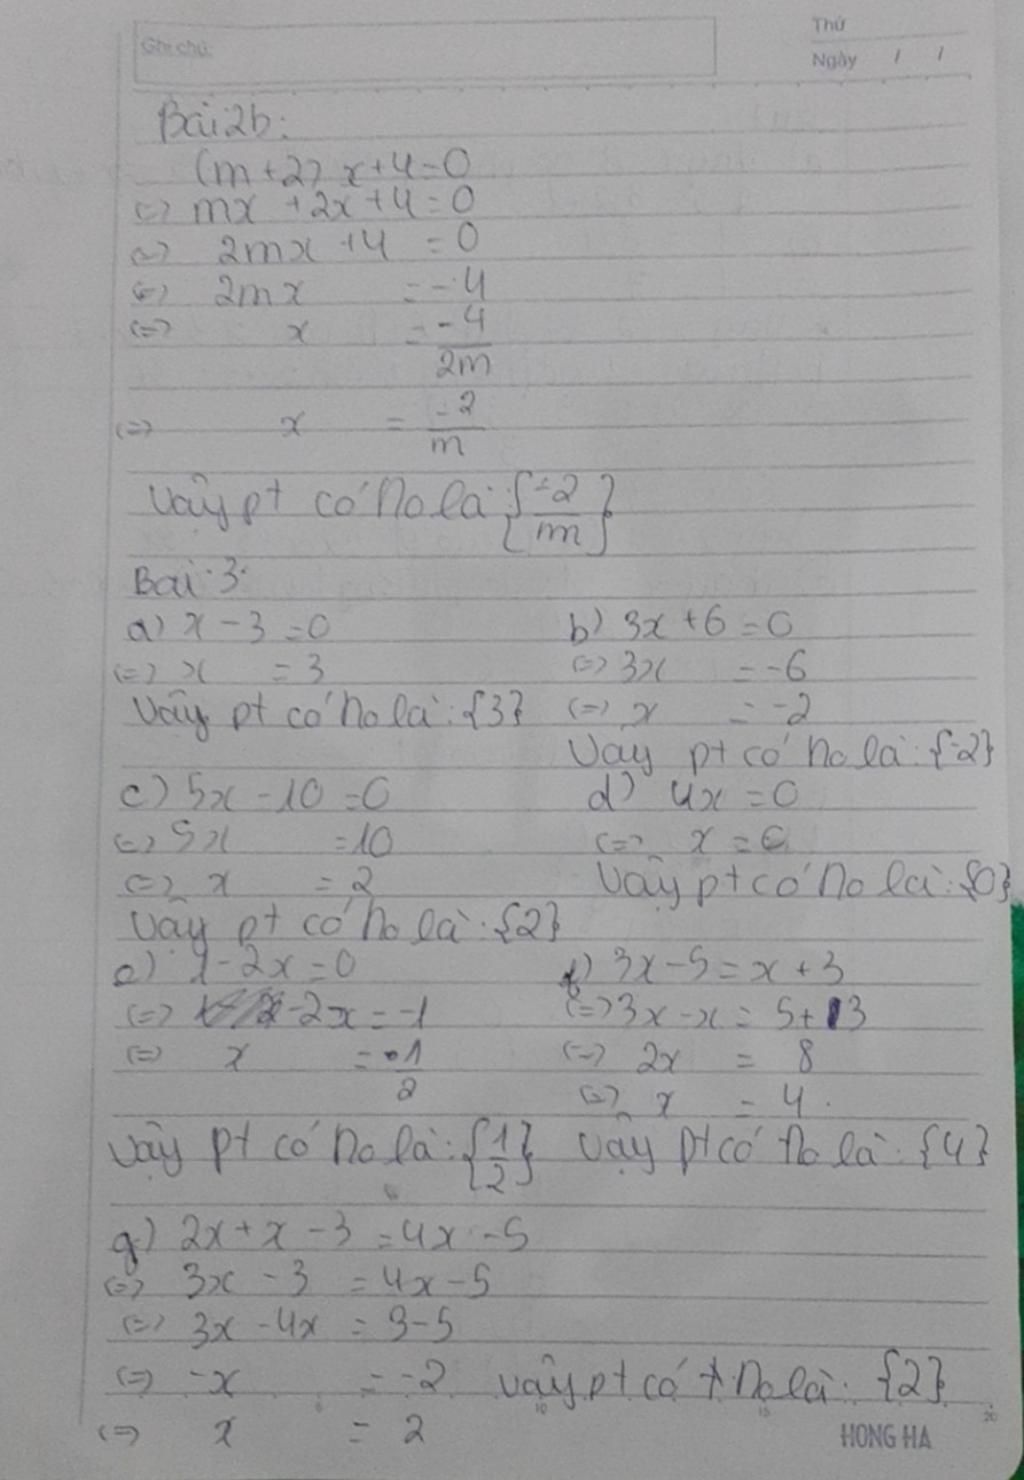 Ghi chú:
Thứ
Ngày / /
Bài 2b:
(m+2) x+4=0
<=> mx +2x+4=0
<=> 2mx +4 =0
<=> 2mx =-4
<=> x = -4/2m
<=> x = -2/m
Vậy pt có no là {-2/m}
Bài 3:
a) x-3=0
<=> x =3
Vậy pt có no là: {3}
b) 3x+6=0
<=> 3x =-6
<=> x =-2
Vậy pt có no là: {-2}
c) 5x-10=0
<=> 5x =10
<=> x =2
Vậy pt có no là: {2}
d) 4x=0
<=> x=0
Vậy pt có no là: {0}
e) 1-2x=0
<=> -2x=-1
<=> x = 1/2
Vậy pt có no là: {1/2}
f) 3x-5=x+3
<=> 3x-x= 5+3
<=> 2x = 8
<=> x = 4.
Vậy pt có no là: {4}
g) 2x+x-3=4x-5
<=> 3x-3 =4x-5
<=> 3x-4x = 3-5
<=> -x =-2
<=> x = 2
Vậy pt có no là: {2}
10 15 20
HONG HA